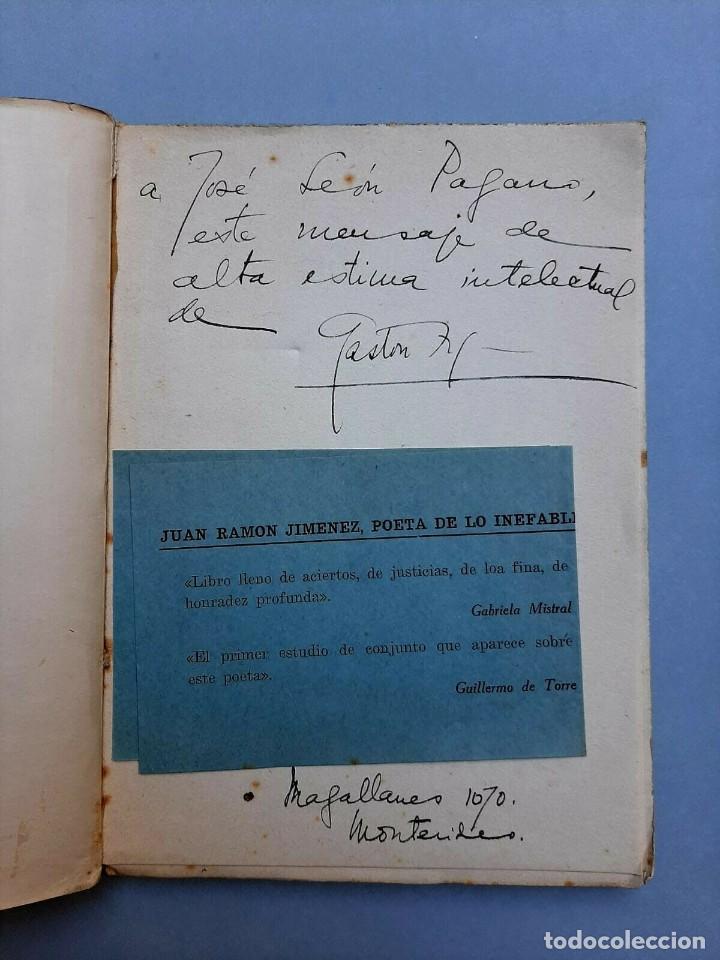 a José León Pagano,
este mensaje de
alta estima intelectual
de
Gaston
JUAN RAMON JIMENEZ, POETA DE LO INEFABL
«Libro lleno de aciertos, de justicias, de loa fina, de
honradez profunda».
Gabriela Mistral
«El primer estudio de conjunto que aparece sobre
este poeta».
Guillermo de Torre
Magallanes 1070.
Montevideo.
todocoleccion